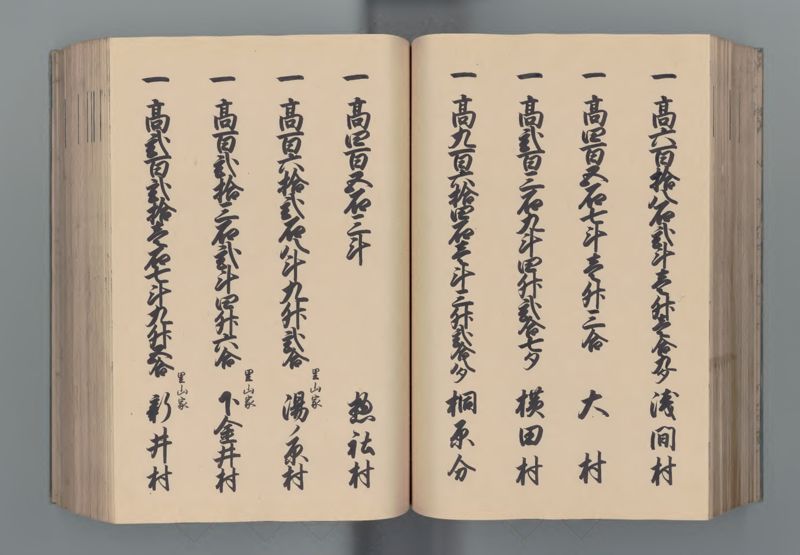 一 高六百拾八石弐斗壱升壱合九夕 浅間村
一 高四百五石七斗壱升三合 大村
一 高弐百三石九斗四升弐合七夕 横田村
一 高九百六拾四石壱斗三升弐合八夕 桐原分
一 高四百五石三斗 惣社村
一 高百六拾弐石八斗九升弐合 里山家 湯ノ原村
一 高百弐拾三石弐斗四升六合 里山家 下金井村
一 高弐百弐拾壱石七斗九升五合 里山家 新井村